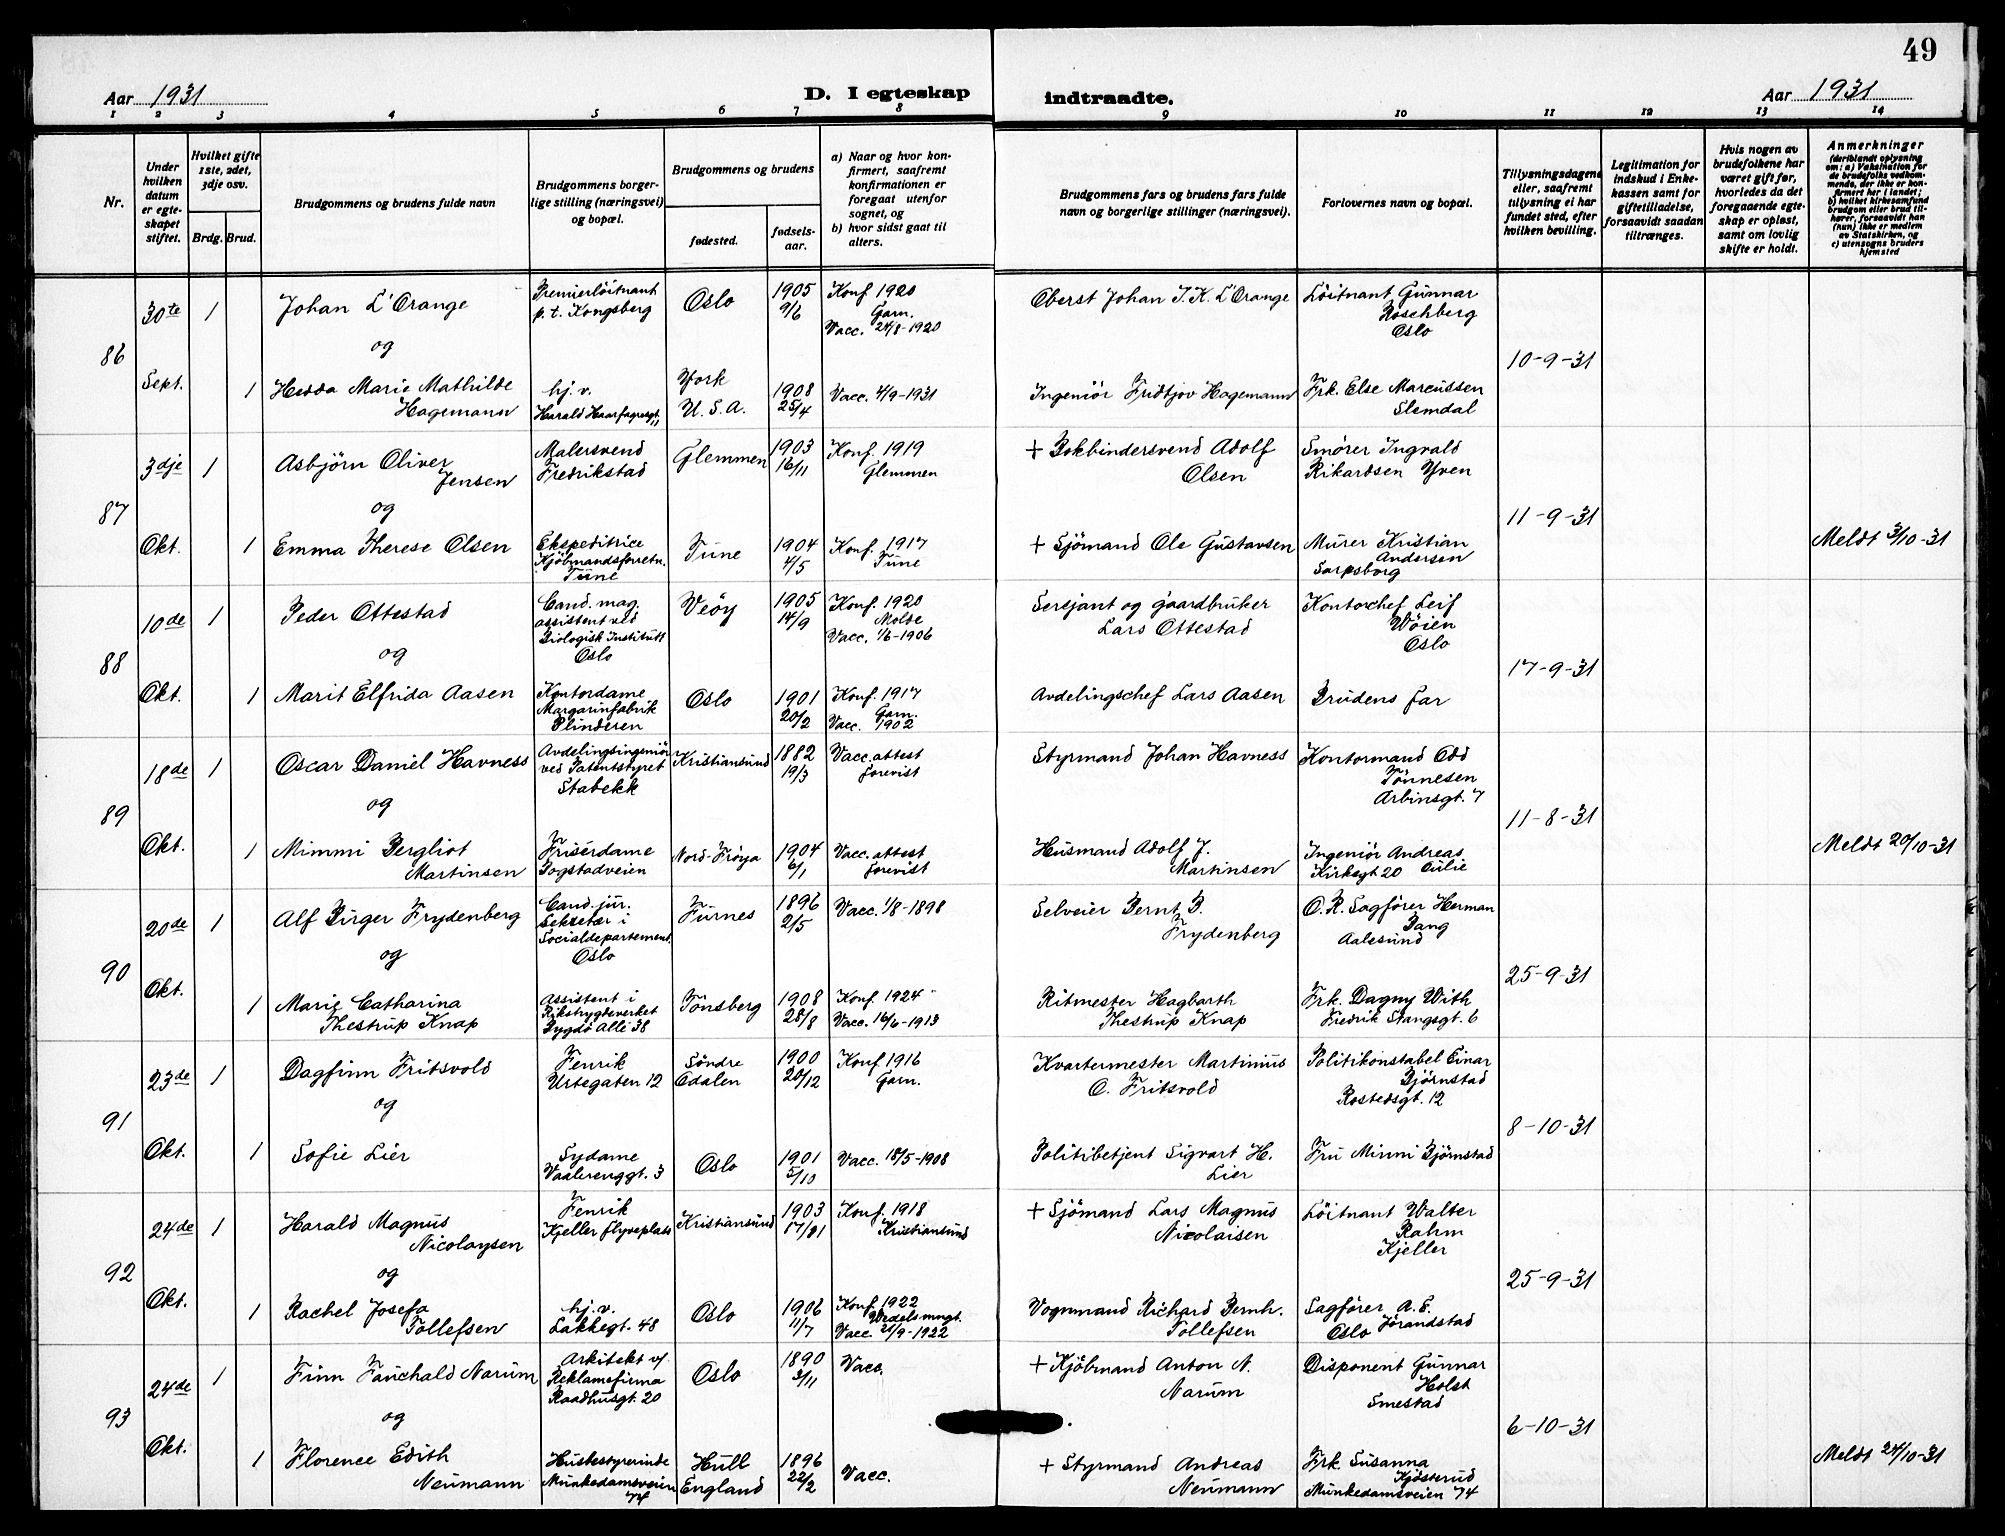 49
Aar 1931
D. I egteskap indtraadte.
Aar 1931
1 2 3 4 5 6 7 8 9 10 11 12 13 14
Nr.
Under hvilken datum er egteskapet stiftet.
Hvilket gifte 1ste, 2det, 3dje osv.
Brdg. Brud.
Brudgommens og brudens fulde navn
Brudgommens borgerlige stilling (næringsvei) og bopæl.
Brudgommens og brudens
fødested.
fødselsaar.
a) Naar og hvor konfirmert, saafremt konfirmationen er foregaat utenfor sognet, og
b) hvor sidst gaat til alters.
Brudgommens fars og brudens fars fulde navn og borgerlige stillinger (næringsvei).
Forlovernes navn og bopæl.
Tillysningsdagene eller, saafremt tillysning ei har fundet sted, efter hvilken bevilling.
Legitimation for indskud i Enkekassen samt for giftetilladelse, forsaavidt saadan tiltrænges.
Hvis nogen av brudefolkene har været gift før, hvorledes da det foregaaende egteskap er opløst, samt om lovlig skifte er holdt.
Anmerkninger
(deriblandt oplysning om: a) Vaksination for de brudefolks vedkommende, der ikke er konfirmert her i landet; b) hvilket kirkesamfund brudgom eller brud tilhører, forsaavidt han (hun) ikke er medlem av Statskirken, og c) utensogns bruders hjemsted
86
30te Sept.
1
Johan L'Orange
Premierløitnant
p. t. Kongsberg
Oslo
1905
9/6
Konf 1920
Garn.
Vacc. 24/8-1920
Oberst Johan T. K. L'Orange
Löitnant Gunnar
Roschberg
Oslo
og
10-9-31
1
Hedda Marie Mathilde
Hagemann
hj. v.
Harald Haarfagresgt. 11
York
U. S. A.
1908
25/4
Vacc. 4/9-1931
Ingeniör Fridtjov Hagemann
Frk. Else Marcussen
Slemdal
87
3dje Okt.
1
Asbjörn Oliver
Jensen
Malersvend
Fredrikstad
Glemmen
1903
16/11
Konf. 1919
Glemmen
+ Bokbindersvend Adolf
Olsen
Smörer Ingvald
Rikardsen Yven
og
11-9-31
1
Emma Therese Olsen
Ekspeditrice
Kjöbmandsforretn.
Tune
Tune
1904
4/5
Konf. 1917
Tune
+ Sjömand Ole Gustavsen
Murer Kristian
Andersen
Sarpsborg
Meldt 3/10-31
88
10de Okt.
1
Peder Ottestad
Cand. mag.
assistent ved
Biologisk Institutt
Oslo
Veöy
1905
14/9
Konf. 1920
Molde
Vacc. 1/6-1906
Sersjant og gaardbruker
Lars Ottestad
Kontorchef Leif
Wöien
Oslo
og
17-9-31
1
Marit Elfrida Aasen
Kontordame
Margarinfabrik
Blinderen
Oslo
1901
20/2
Konf. 1917
Garn.
Vacc. 1902
Avdelingschef Lars Aasen
Brudens far
89
18de Okt.
1
Oscar Daniel Havness
Avdelingsingeniör
ved Patentstyret
Stabekk
Kristiansund
1882
19/3
Vacc. attest
forevist
Styrmand Johan Havness
Kontormand Odd
Tönnesen
Arbinsgt. 7
og
11-8-31
1
Mimmi Bergliot
Martinsen
Frisérdame
Bogstadveien
Nord-Fröya
1904
6/1
Vacc. attest
forevist
Husmand Adolf J.
Martinsen
Ingeniör Andreas
Kirkegt 20 Eulie
Meldt 20/10-31
90
20de Okt.
1
Alf Birger Frydenberg
Cand. jur.
Sekretær i
Socialdepartement.
Oslo
Furnes
1896
2/5
Vacc. 1/8-1898
Selveier Bernt B.
Frydenberg
O. R. Sagförer Herman
Bang
Aalesund
og
25-9-31
1
Marie Catharina
Thestrup Knap
assistent i
Rikstrygdeverket
Bygdö Allé 38
Tönsberg
1908
28/8
Konf. 1924
Vacc. 16/6-1913
Ritmester Hagbarth
Thestrup Knap
Frk. Dagny With
Fredrik Stangsgt. 6
91
23de Okt.
1
Dagfinn Fritsvold
Fenrik
Urtegaten 12
Söndre
Odalen
1900
20/12
Konf. 1916
Garn.
Kvartermester Martinius
O. Fritsvold
Politikonstabel Einar
Björnstad
Rostedsgt. 12
og
8-10-31
1
Sofie Lier
Sydame
Vaalerenggt. 3
Oslo
1901
5/10
Vacc. 18/5-1908
Politibetjent Sigvart H.
Lier
Fru Minni Björnstad
92
24de Okt.
1
Harald Magnus
Nicolaysen
Fenrik
Kjeller flyveplass
Kristiansund
1903
Konf. 1918
Kristiansund
+ Sjömand Lars Magnus
Nicolaisen
Löitnant Walter
Rahm
Kjeller
og
25-9-31
1
Rachel Josefa
Tollefsen
hj. v.
Lakkegt. 48
Oslo
1906
11/7
Konf. 1922
Vacc. 21/9-1922
Vognmand Richard Bernh.
Tollefsen
Sagförer A. E.
Oslo Jörandstad
93
24de Okt.
1
Finn Fauchald Narum
Arkitekt v/
Reklamefirma
Raadhusgt. 20
Oslo
1890
3/11
Vacc.
+ Kjöbmand Anton N.
Narum
Disponent Gunnar
Holst
Smestad
og
6-10-31
1
Florence Edith
Neumann
Husbestyrerinde
Munkedamsveien
74
Hull
England
1896
22/2
Vacc.
+ Styrmand Andreas
Neumann
Frk. Susanna
Kjösterud
Munkedamsveien 74
Meldt 24/10-31